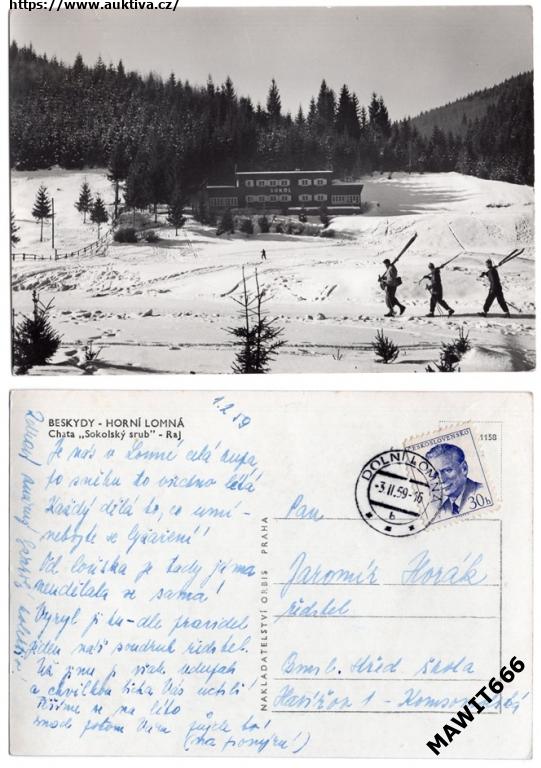 https://www.auktiva.cz/
SOKOL
BESKYDY - HORNÍ LOMNÁ
Chata „Sokolský srub" - Raj
1.2.59
Je nás v Lomné celá
po sněhu to všechno létá
Každý dělá to, co umí -
nebojte se lyžaření!
Od loňska je tady jáma
neudělala se sama!
Vyryl ji ku-dle pravidel
jeden náš soudruh ředitel.
Už jsme ji však
a chvilkou ticha Vás uctili!
Těšíme se na léto
snad potom Vám půjde to!
(na pionýru!)
NAKLADATELSTVÍ ORBIS PRAHA
1158
ČESKOSLOVENSKO
30h
DOLNÍ LOMNÁ
-3.II.59-16
b
Pan
Jaromír Horák
ředitel
střed. škola
Havířov 1 -
MAWIT666